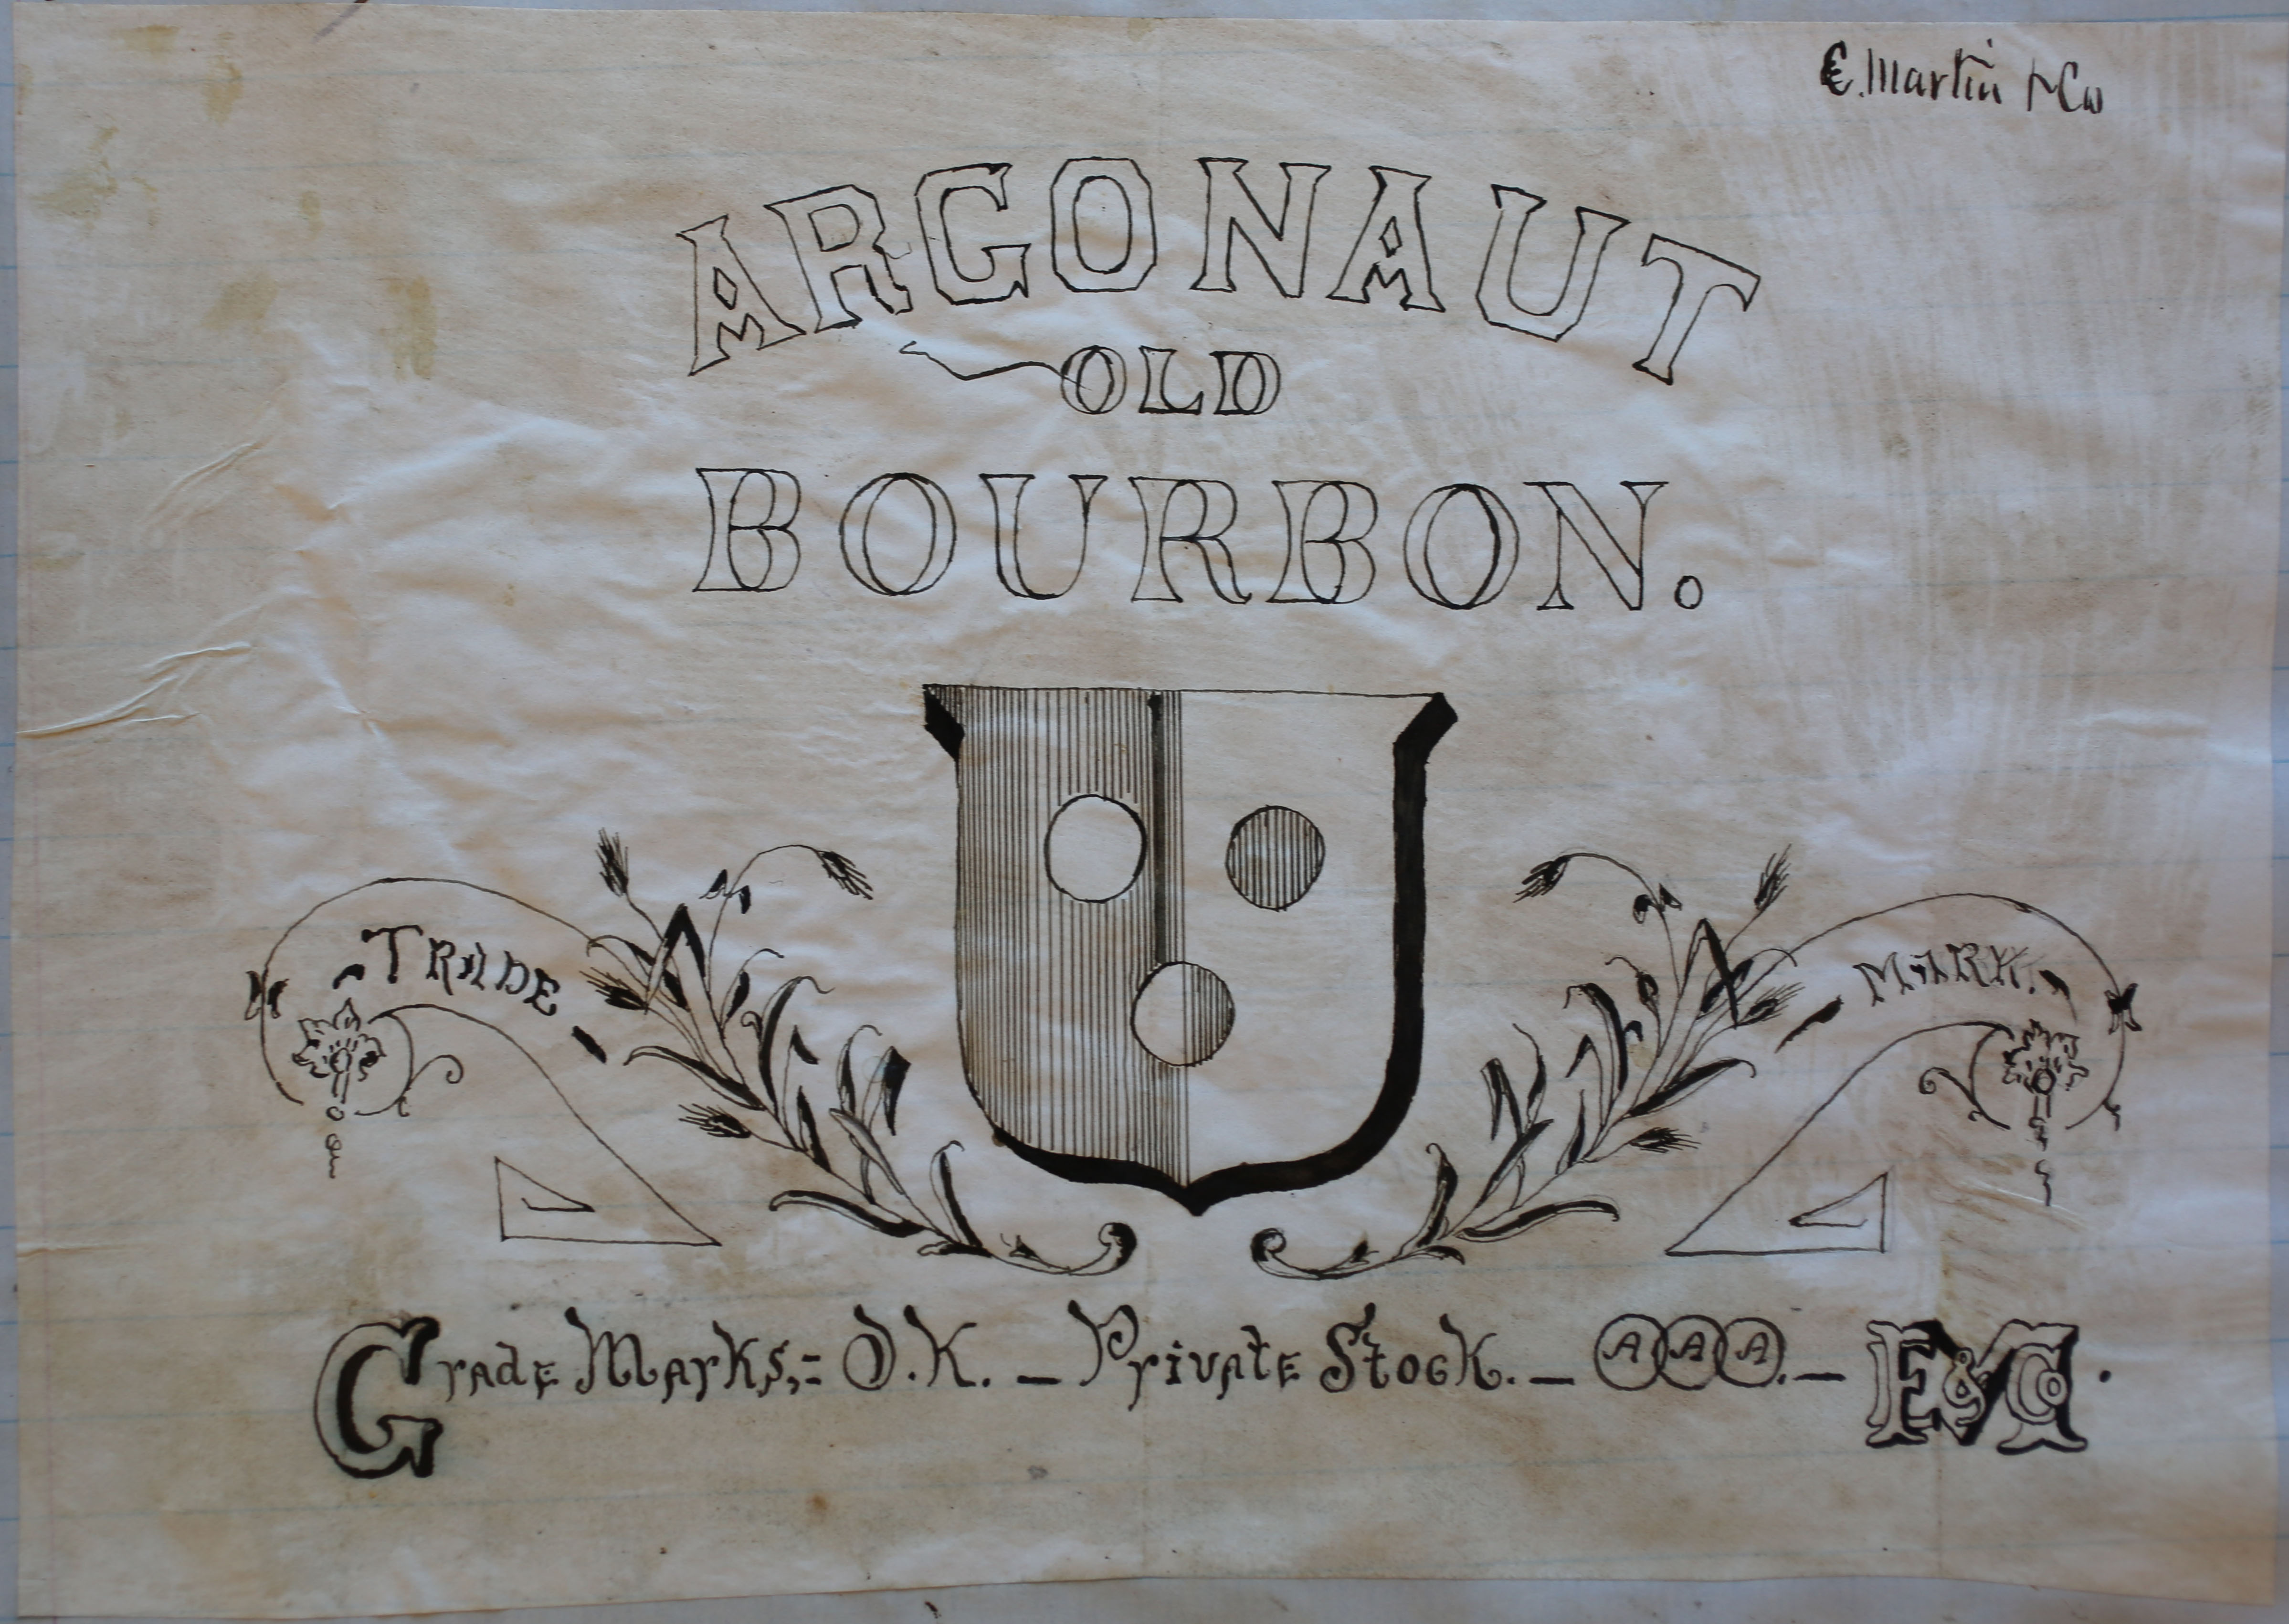 E. Martin & Co
ARGONAUT
OLD
BOURBON.
TRADE MARK.
Grade Marks,= O.K. — Private Stock. — AAA. — E M & Co.